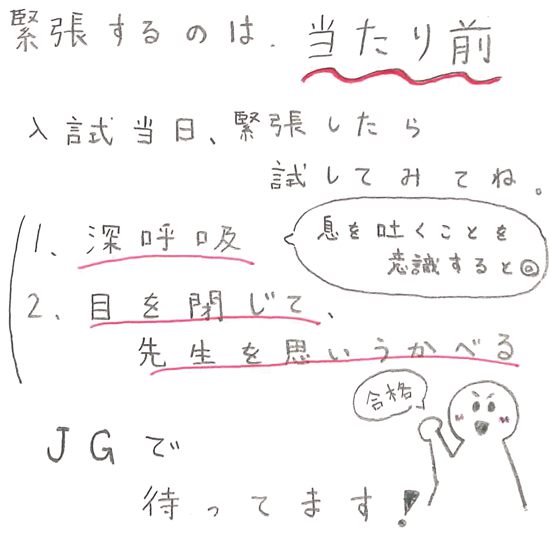 緊張するのは、当たり前
入試当日、緊張したら
試してみてね。
1、深呼吸
息を吐くことを
意識すると◎
2、目を閉じて、
先生を思いうかべる
合格
JGで
待ってます!